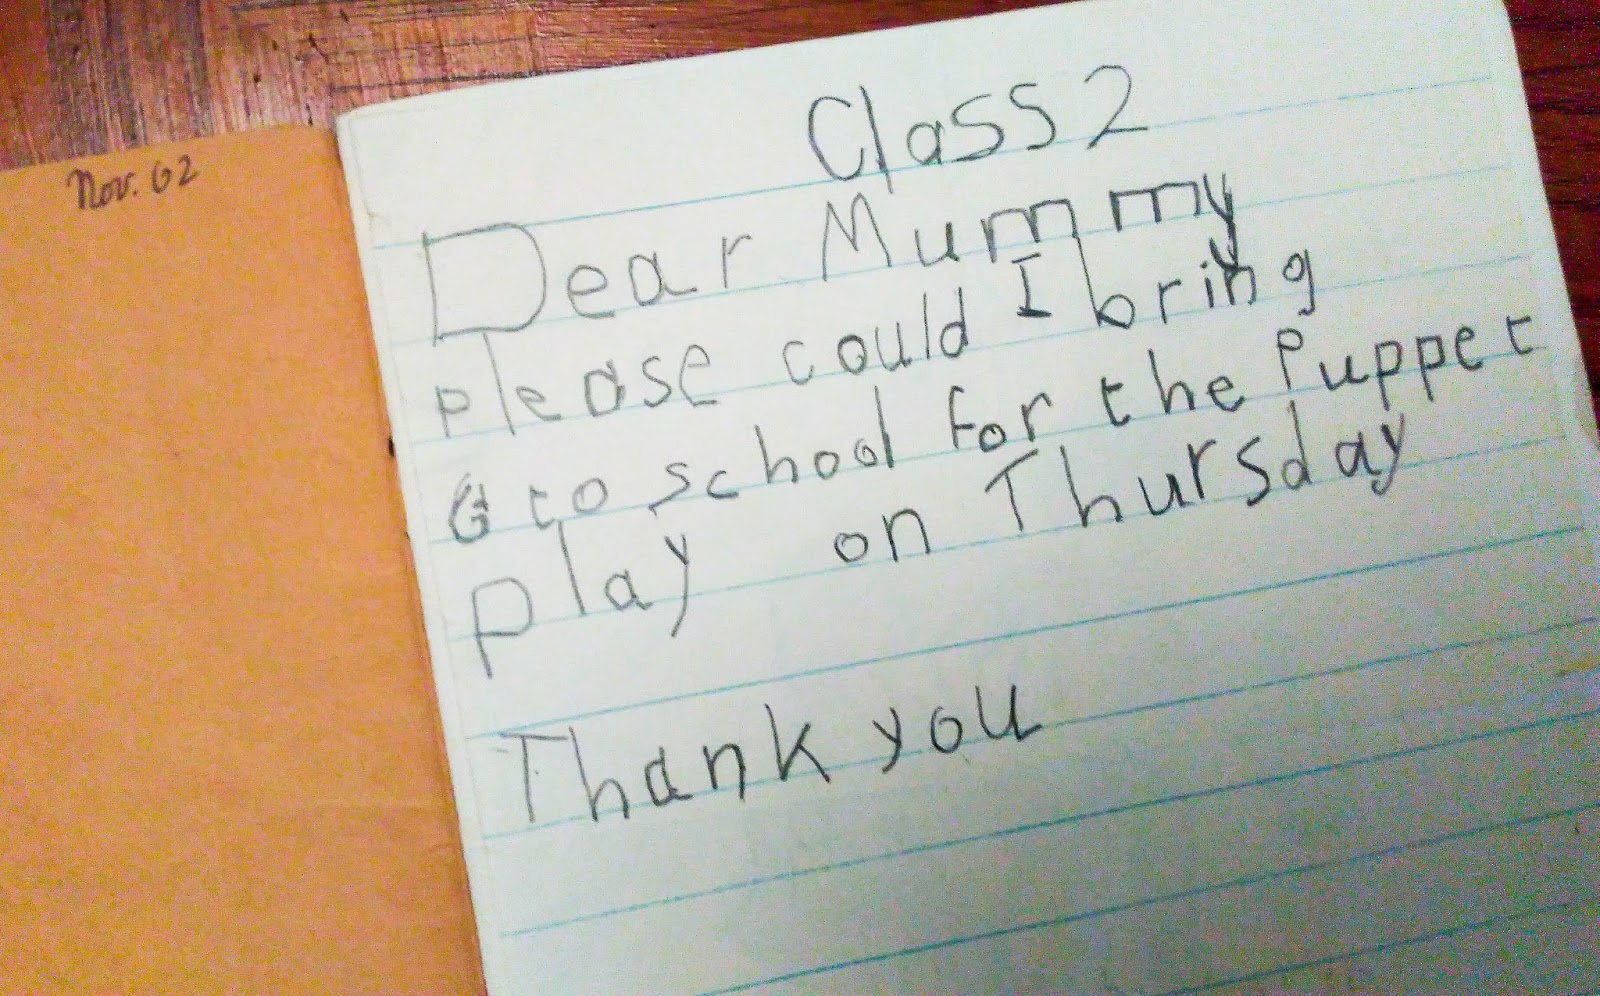 Nov. 62
Class 2
Dear Mummy
Please could I bring
6 to school for the Puppet
Play on Thursday
Thank you